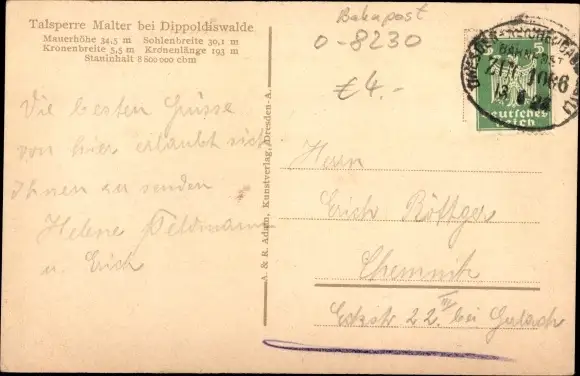 Talsperre Malter bei Dippoldiswalde
Mauerhöhe 34,5 m Sohlenbreite 30,1 m
Kronenbreite 5,5 m Kronenlänge 193 m
Stauinhalt 8 800 000 cbm
Bahnpost
0-8230
€ 4.-
BAHNPOST
ZUG 1086
5
Deutsches
Reich
Die besten Grüsse
von hier erlaubt sich
Ihnen zu senden
Helene Feldmann
u. Erich
A. & R. Adam, Kunstverlag, Dresden-A.
Herrn
Erich Böttger
Chemnitz
22. III bei